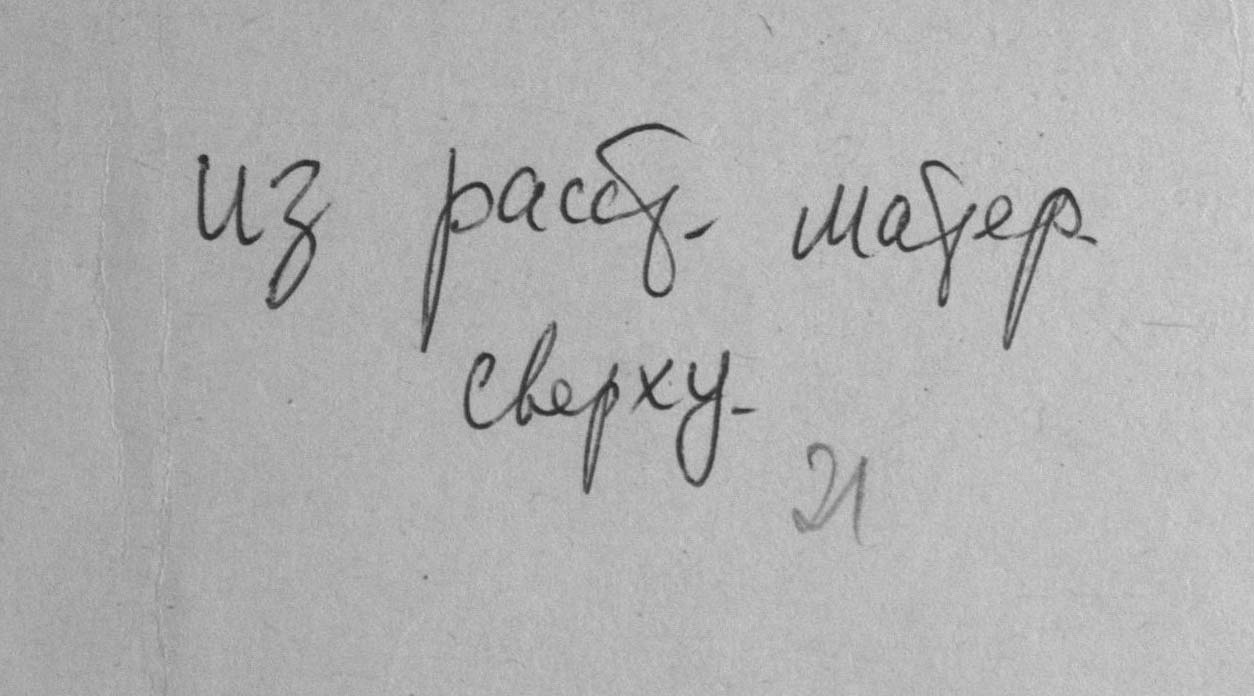 из расст. матер.
сверху.
21